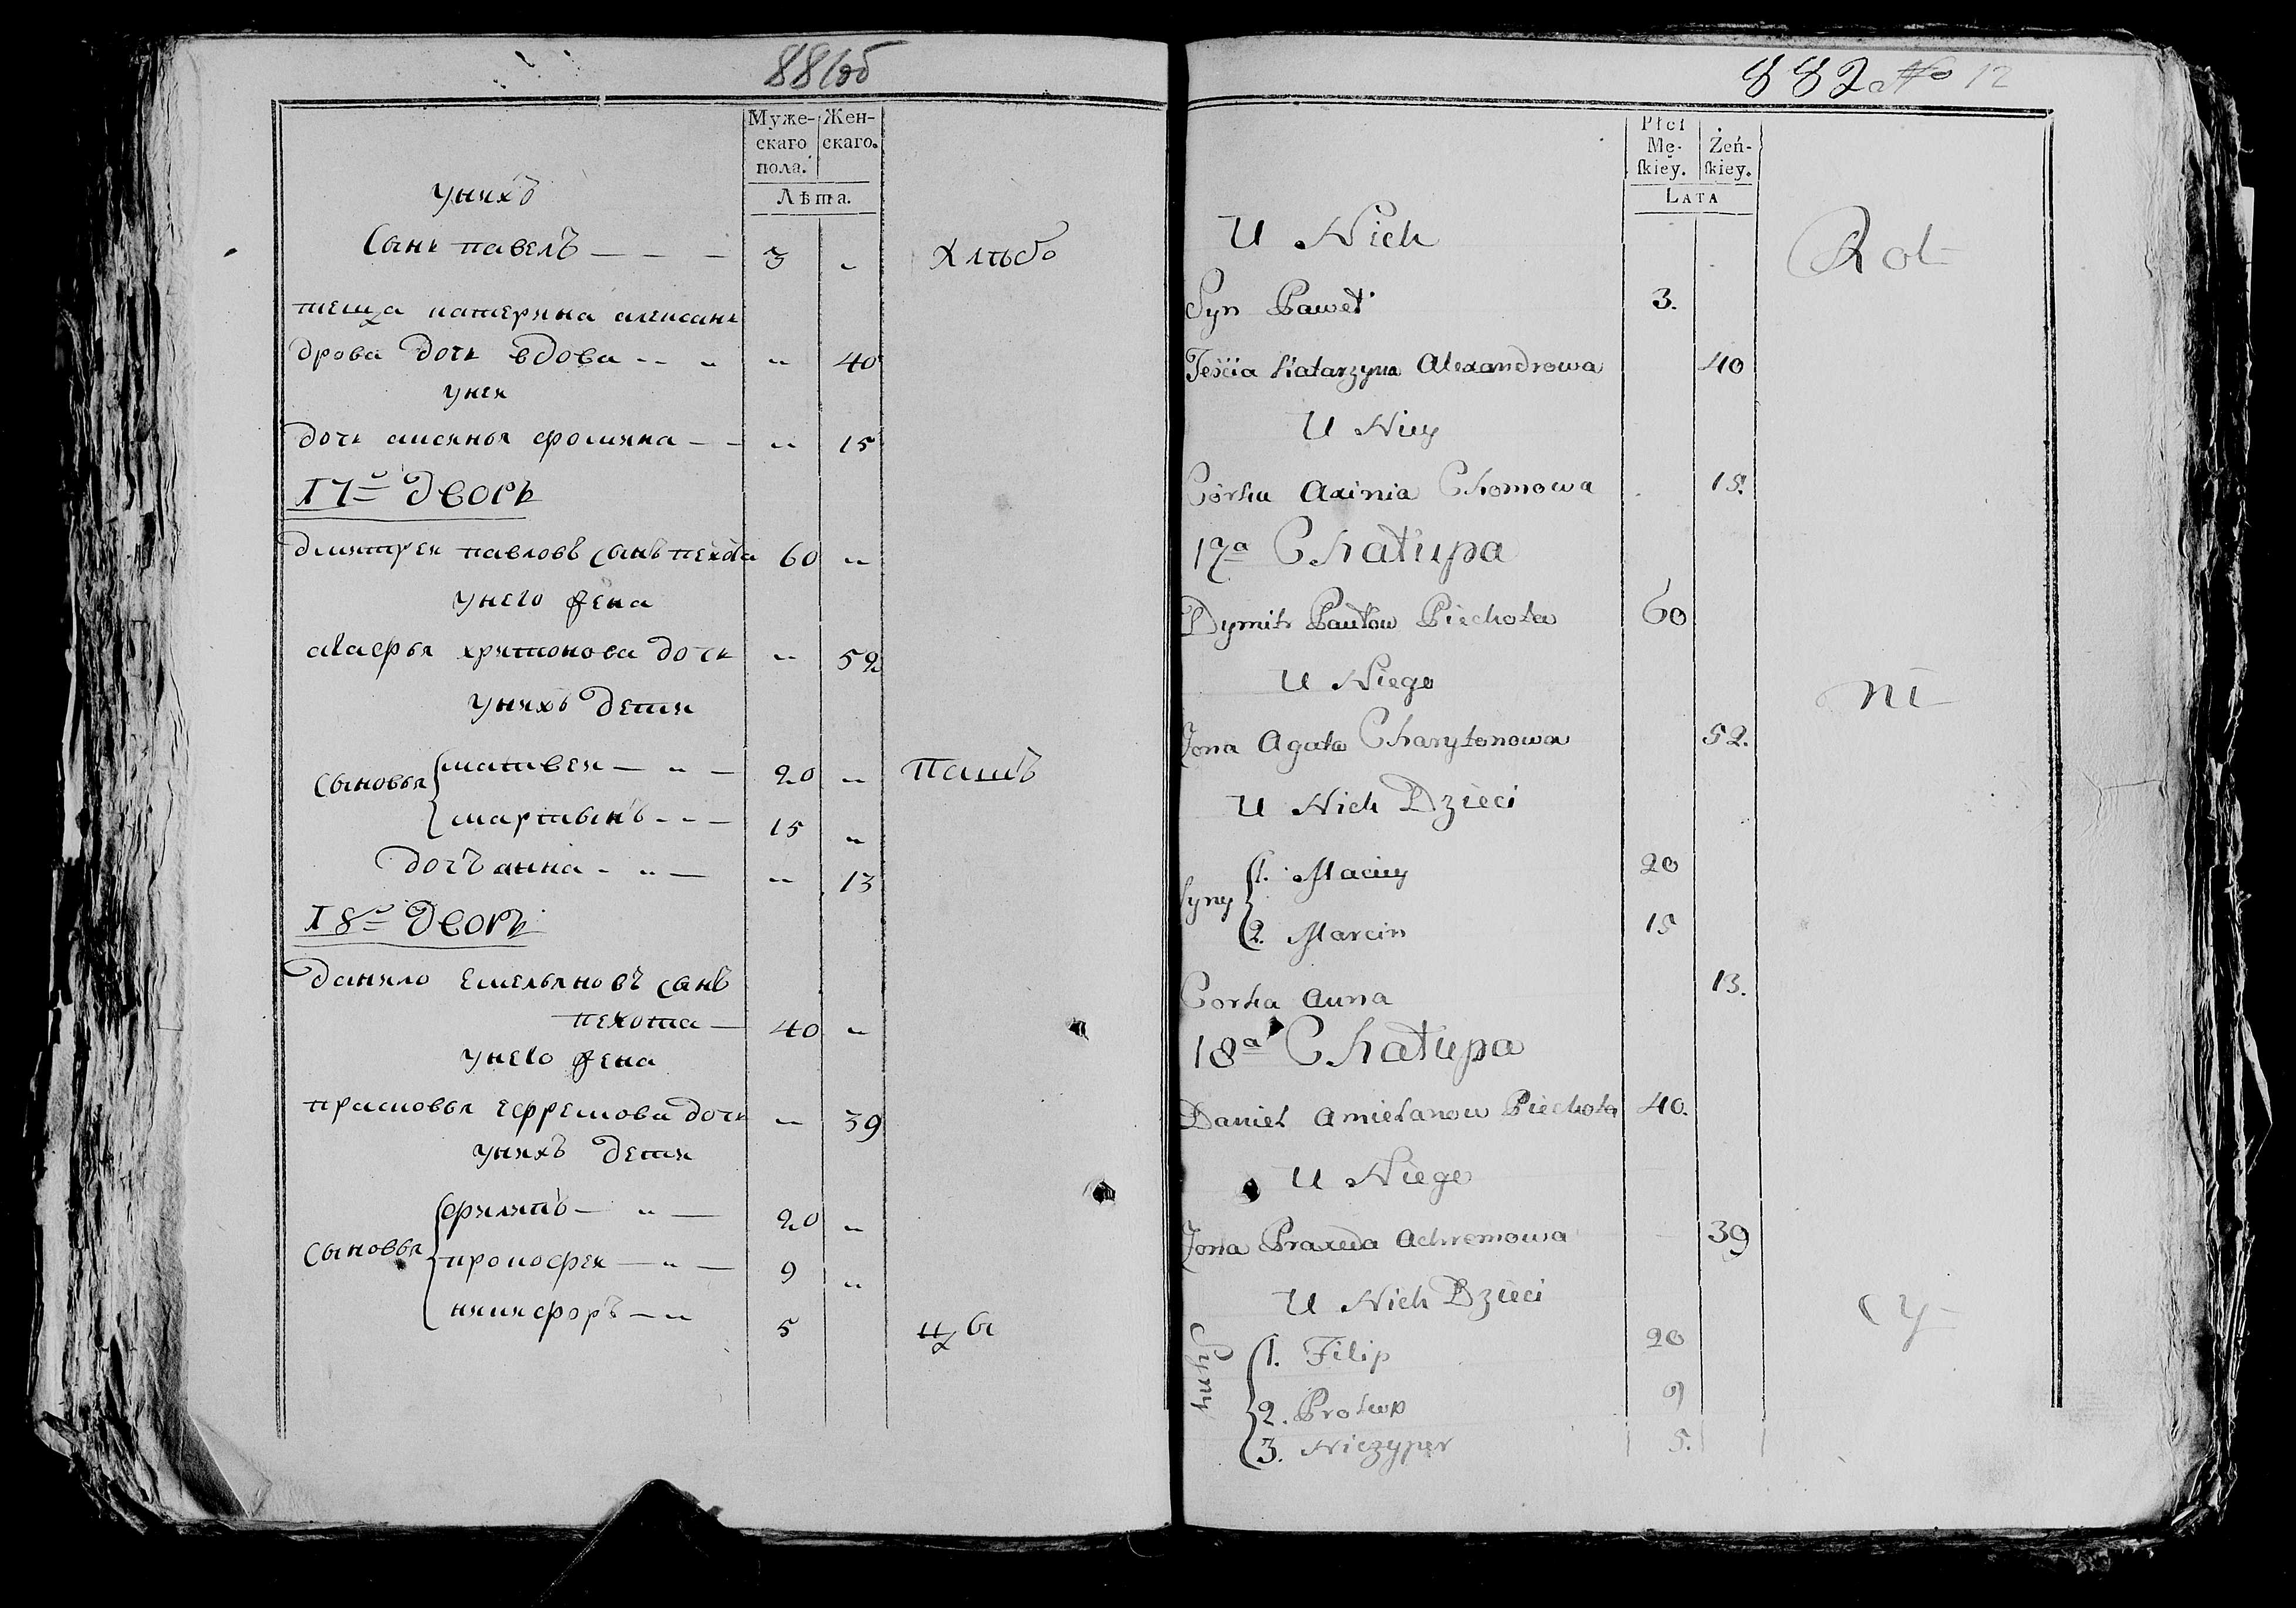 881об
Муже-
скаго
пола.
Жен-
скаго.
Лѣта.
унихъ
Сынъ павелъ — — — 3 „ хлѣбо
теща катерина алексан
дрова дочь вдова - - „ „ 40
унея
дочь аксинья фомина — — „ 15
17й дворъ
дмитрей павловъ сынъ пехота 60 „
унего жена
агафья харитонова дочь „ 52
унихъ дети
сыновья
матвей — „ — 20 „ пашъ
мартынъ - - — 15 „
дочь анна - „ — „ 13
18й дворъ
данило емельяновъ сынъ
пехота — 40 „
унего жена
прасковья ефремова дочь „ 39
унихъ дети
сыновья
филипъ — „ — 20 „
прокофей — „ — 9 „
никифоръ — „ 5 цы
882 No 12
Płci
Mę-
ſkiey.
Żeń-
ſkiey.
Lata
U Nich Rol-
Syn Paweł 3.
Teścia Katarzyna Alexandrowa 40
U Niey
Córka Axinia Chomowa 15.
17a Chałupa
Dymitr Pawłow Piechota 60
U Niego ni-
Żona Agata Charytonowa 52.
U Nich Dzieci
Syny
1. Maciey 20
2. Marcin 15
Corka Anna 13.
18a Chałupa
Daniel Amielanow Piechota 40.
U Niego
Żona Praxeda Achremowa 39
U Nich Dzieci cy-
Syny
1. Filip 20
2. Prokop 9
3. Niczyper 5.